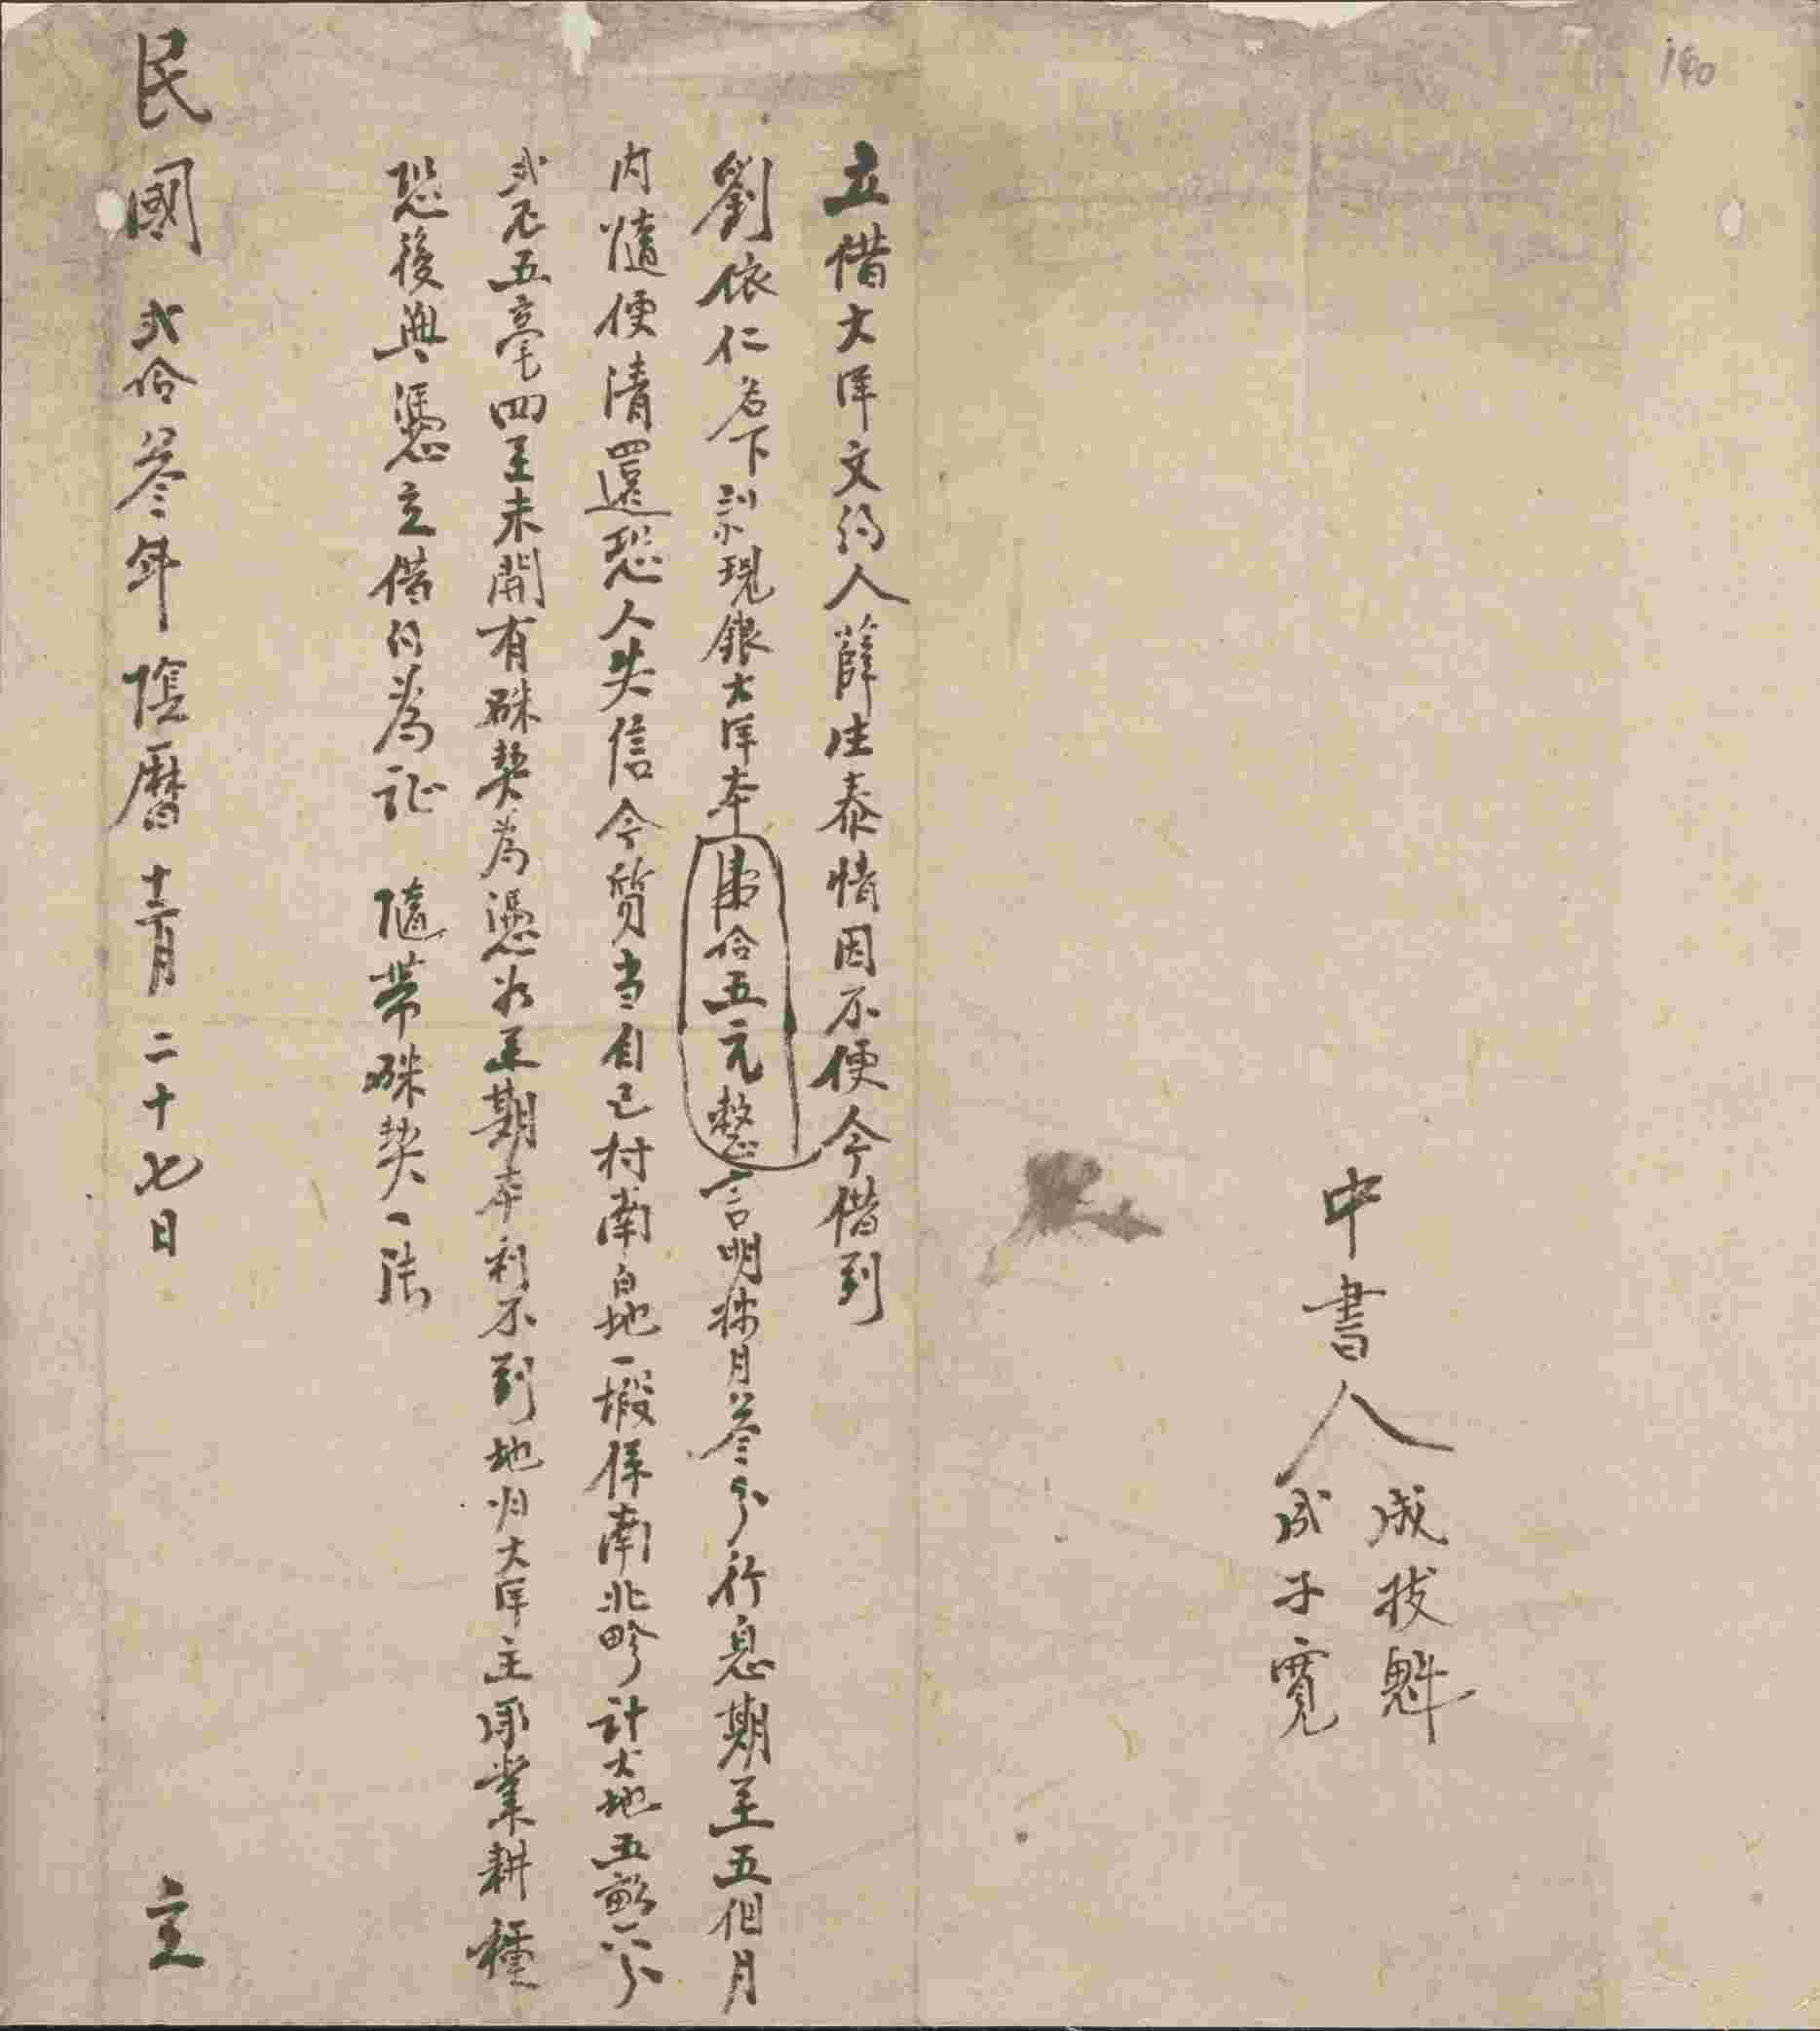 140
立借大洋文约人薛生泰情因不便今借到
劉依仁名下訾現銀大洋本伍拾五元整言明按月叁分行息期至五個月
内隨便清還恐人失信今質当自己村南白地一塅係南北畛計大地五畝六分
弍厘五毫四至未開有硃契為憑如至期本利不到地归大洋主承業耕種
恐後無憑立借约為证 隨帶硃契一張
民國弍拾叁年陰曆十二月二十七日 立
中書人
成拔魁
成子寬